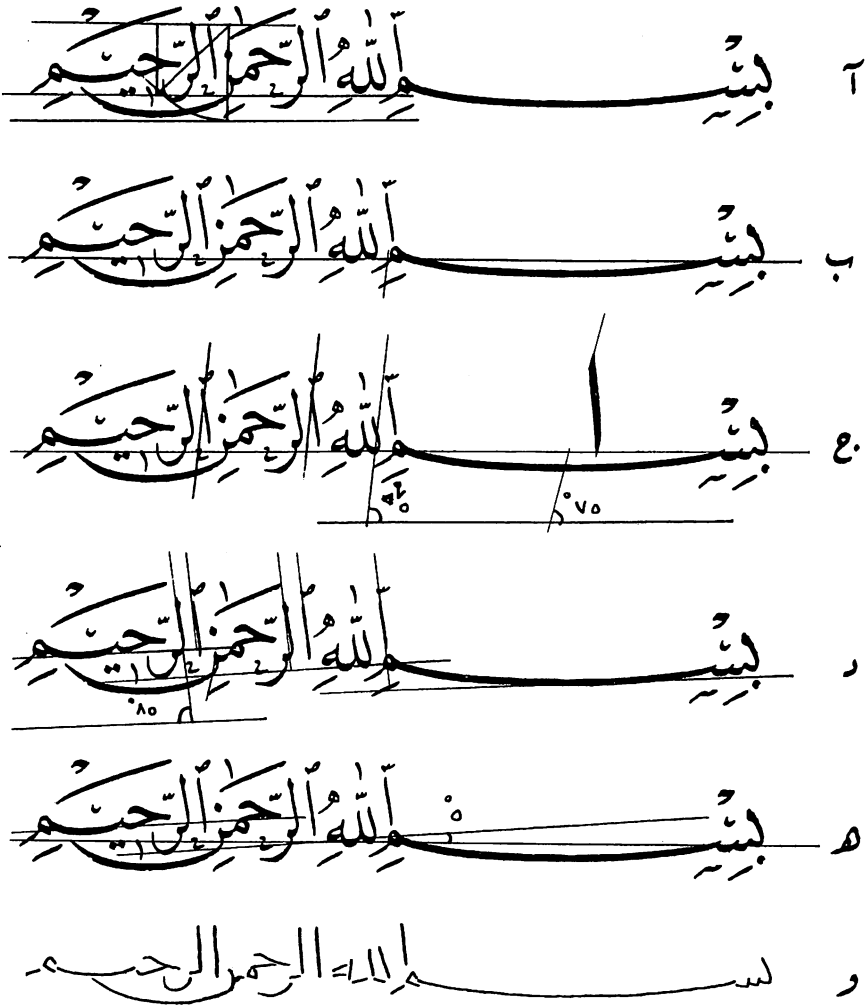 آ بِسْمِ ٱللَّهِ ٱلرَّحْمَٰنِ ٱلرَّحِيمِ
ب بِسْمِ ٱللَّهِ ٱلرَّحْمَٰنِ ٱلرَّحِيمِ
ج بِسْمِ ٱللَّهِ ٱلرَّحْمَٰنِ ٱلرَّحِيمِ
٧٥°
د بِسْمِ ٱللَّهِ ٱلرَّحْمَٰنِ ٱلرَّحِيمِ
٨٥°
ه بِسْمِ ٱللَّهِ ٱلرَّحْمَٰنِ ٱلرَّحِيمِ
٥°
و بسم الله الرحمن الرحيم